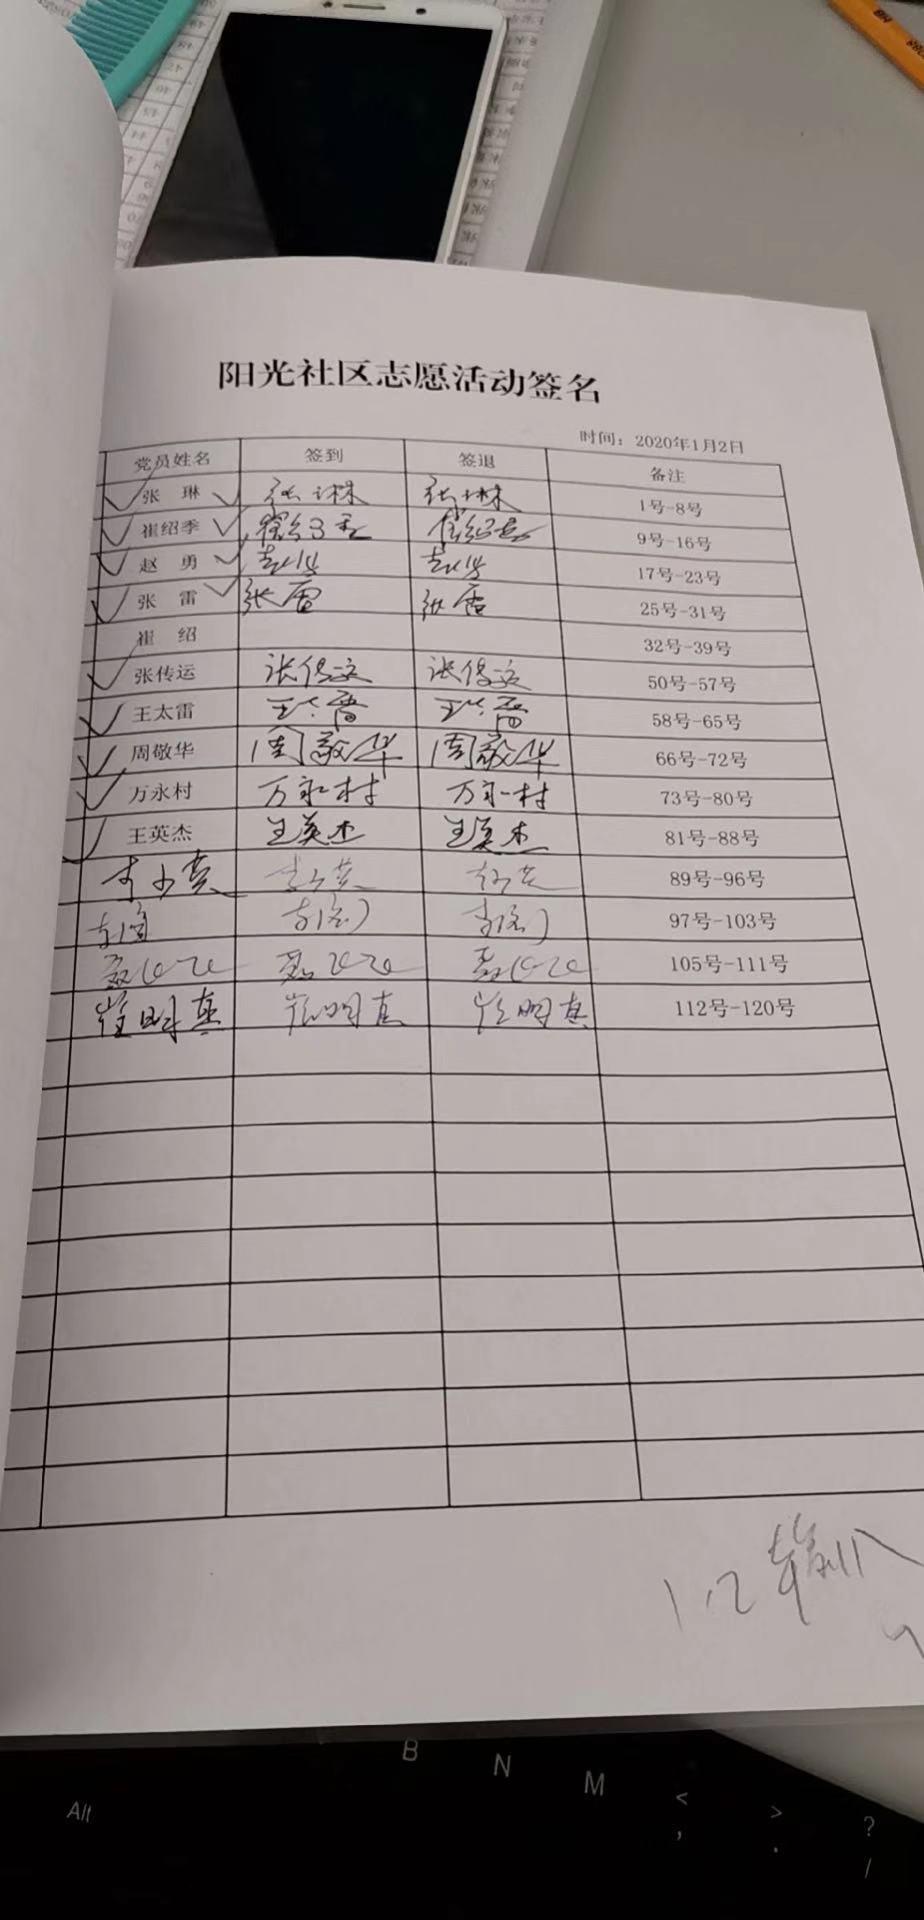 阳光社区志愿活动签名
时间：2020年1月2日
党员姓名 签到 签退 备注
张 琳 张琳 张琳 1号-8号
崔绍季 崔绍季 崔绍季 9号-16号
赵 勇 赵勇 赵勇 17号-23号
张 雷 张雷 张雷 25号-31号
崔 绍 32号-39号
张传运 张传运 张传运 50号-57号
王太雷 王太雷 王太雷 58号-65号
周敬华 周敬华 周敬华 66号-72号
万永村 万永村 万永村 73号-80号
王英杰 王英杰 王英杰 81号-88号
89号-96号
97号-103号
105号-111号
崔明真 崔明真 崔明真 112号-120号
1.2
B N M
Alt < > ?
, . /